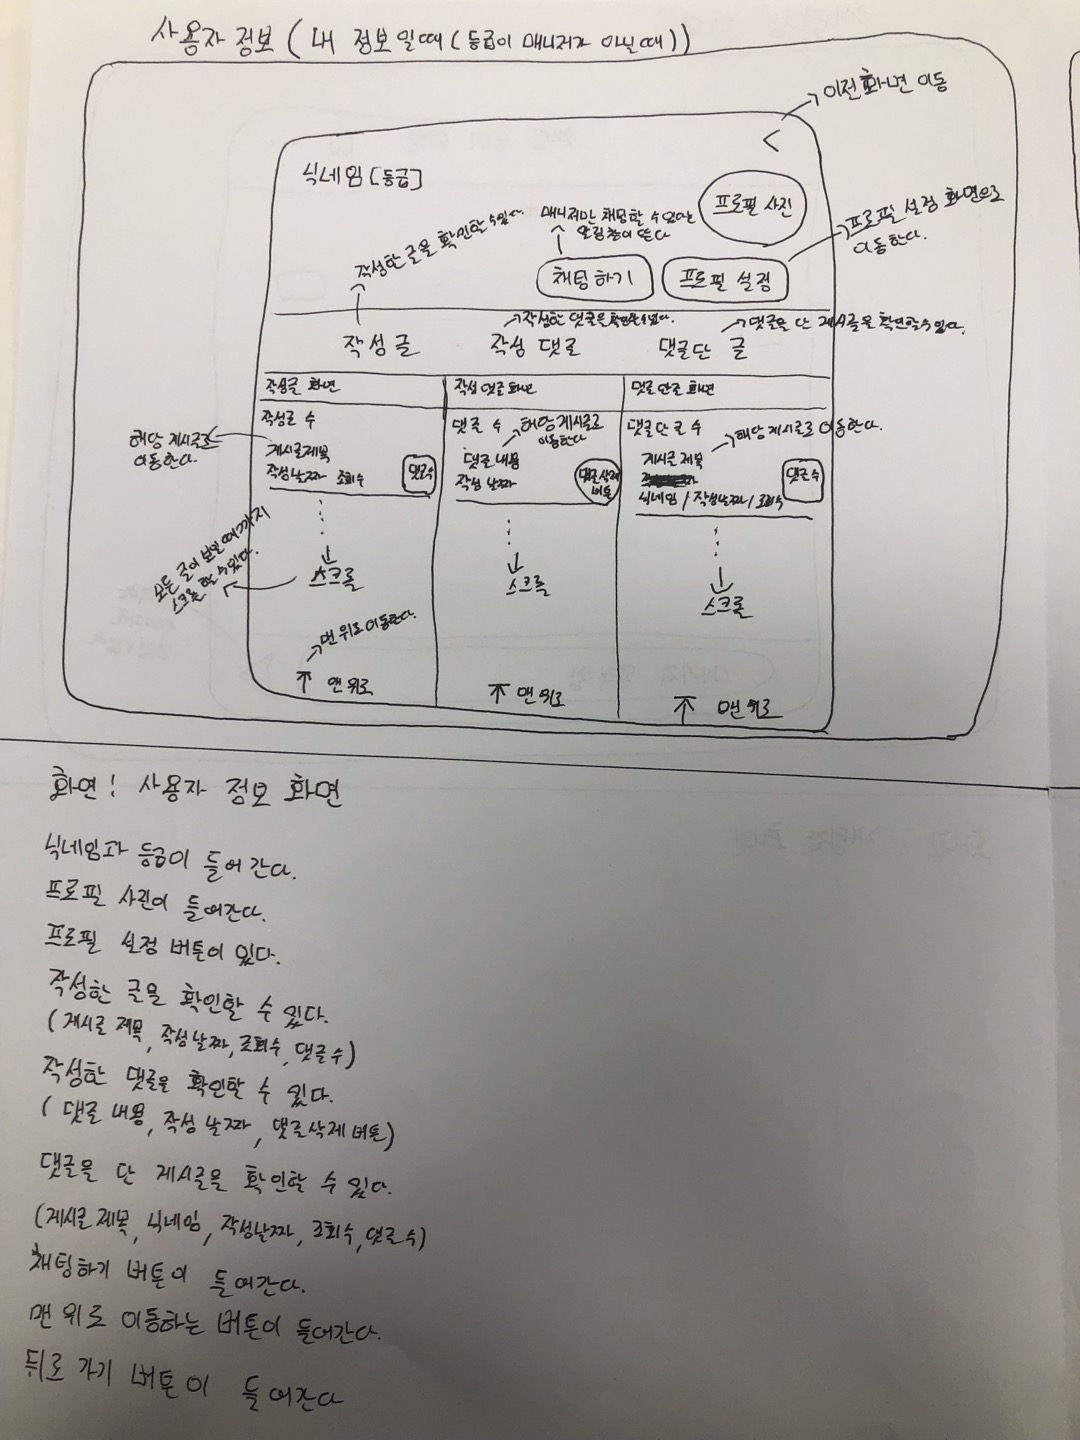 사용자 정보 ( 내 정보일때 (등급이 매니저가 아닐때))
이전화면 이동
<
닉네임 [등급]
프로필 사진
작성한 글을 확인할 수있다.
매니저만 채팅할 수 있다는
알림창이 뜬다
프로필 설정 화면으로
이동한다.
채팅하기
프로필 설정
작성한 댓글을 확인할 수 있다.
댓글을 단 게시글을 확인할수있다.
작성글
작성 댓글
댓글단 글
작성글 화면
작성 댓글 화면
댓글단글 화면
작성글 수
댓글 수
댓글단 글 수
해당 게시글로
이동한다.
해당게시글로
이동한다
해당게시글로 이동한다.
게시글제목
작성날짜 조회수
댓글수
댓글내용
작성 날짜
댓글삭제
버튼
게시글 제목
닉네임 / 작성날짜 / 조회수
댓글수
모든 글이 보일때까지
스크롤 할 수있다.
스크롤
스크롤
스크롤
맨 위로이동한다.
맨위로
맨위로
맨 위로
화면: 사용자 정보 화면
닉네임과 등급이 들어 간다.
프로필 사진이 들어간다.
프로필 설정 버튼이 있다.
작성한 글을 확인할 수 있다.
(게시글 제목, 작성날짜, 조회수, 댓글수)
작성한 댓글을 확인할 수 있다.
( 댓글 내용, 작성 날짜, 댓글삭제 버튼)
댓글을 단 게시글을 확인할 수 있다.
(게시글 제목, 닉네임, 작성날짜, 조회수, 댓글수)
채팅하기 버튼이 들어간다.
맨 위로 이동하는 버튼이 들어간다.
뒤로 가기 버튼이 들어간다